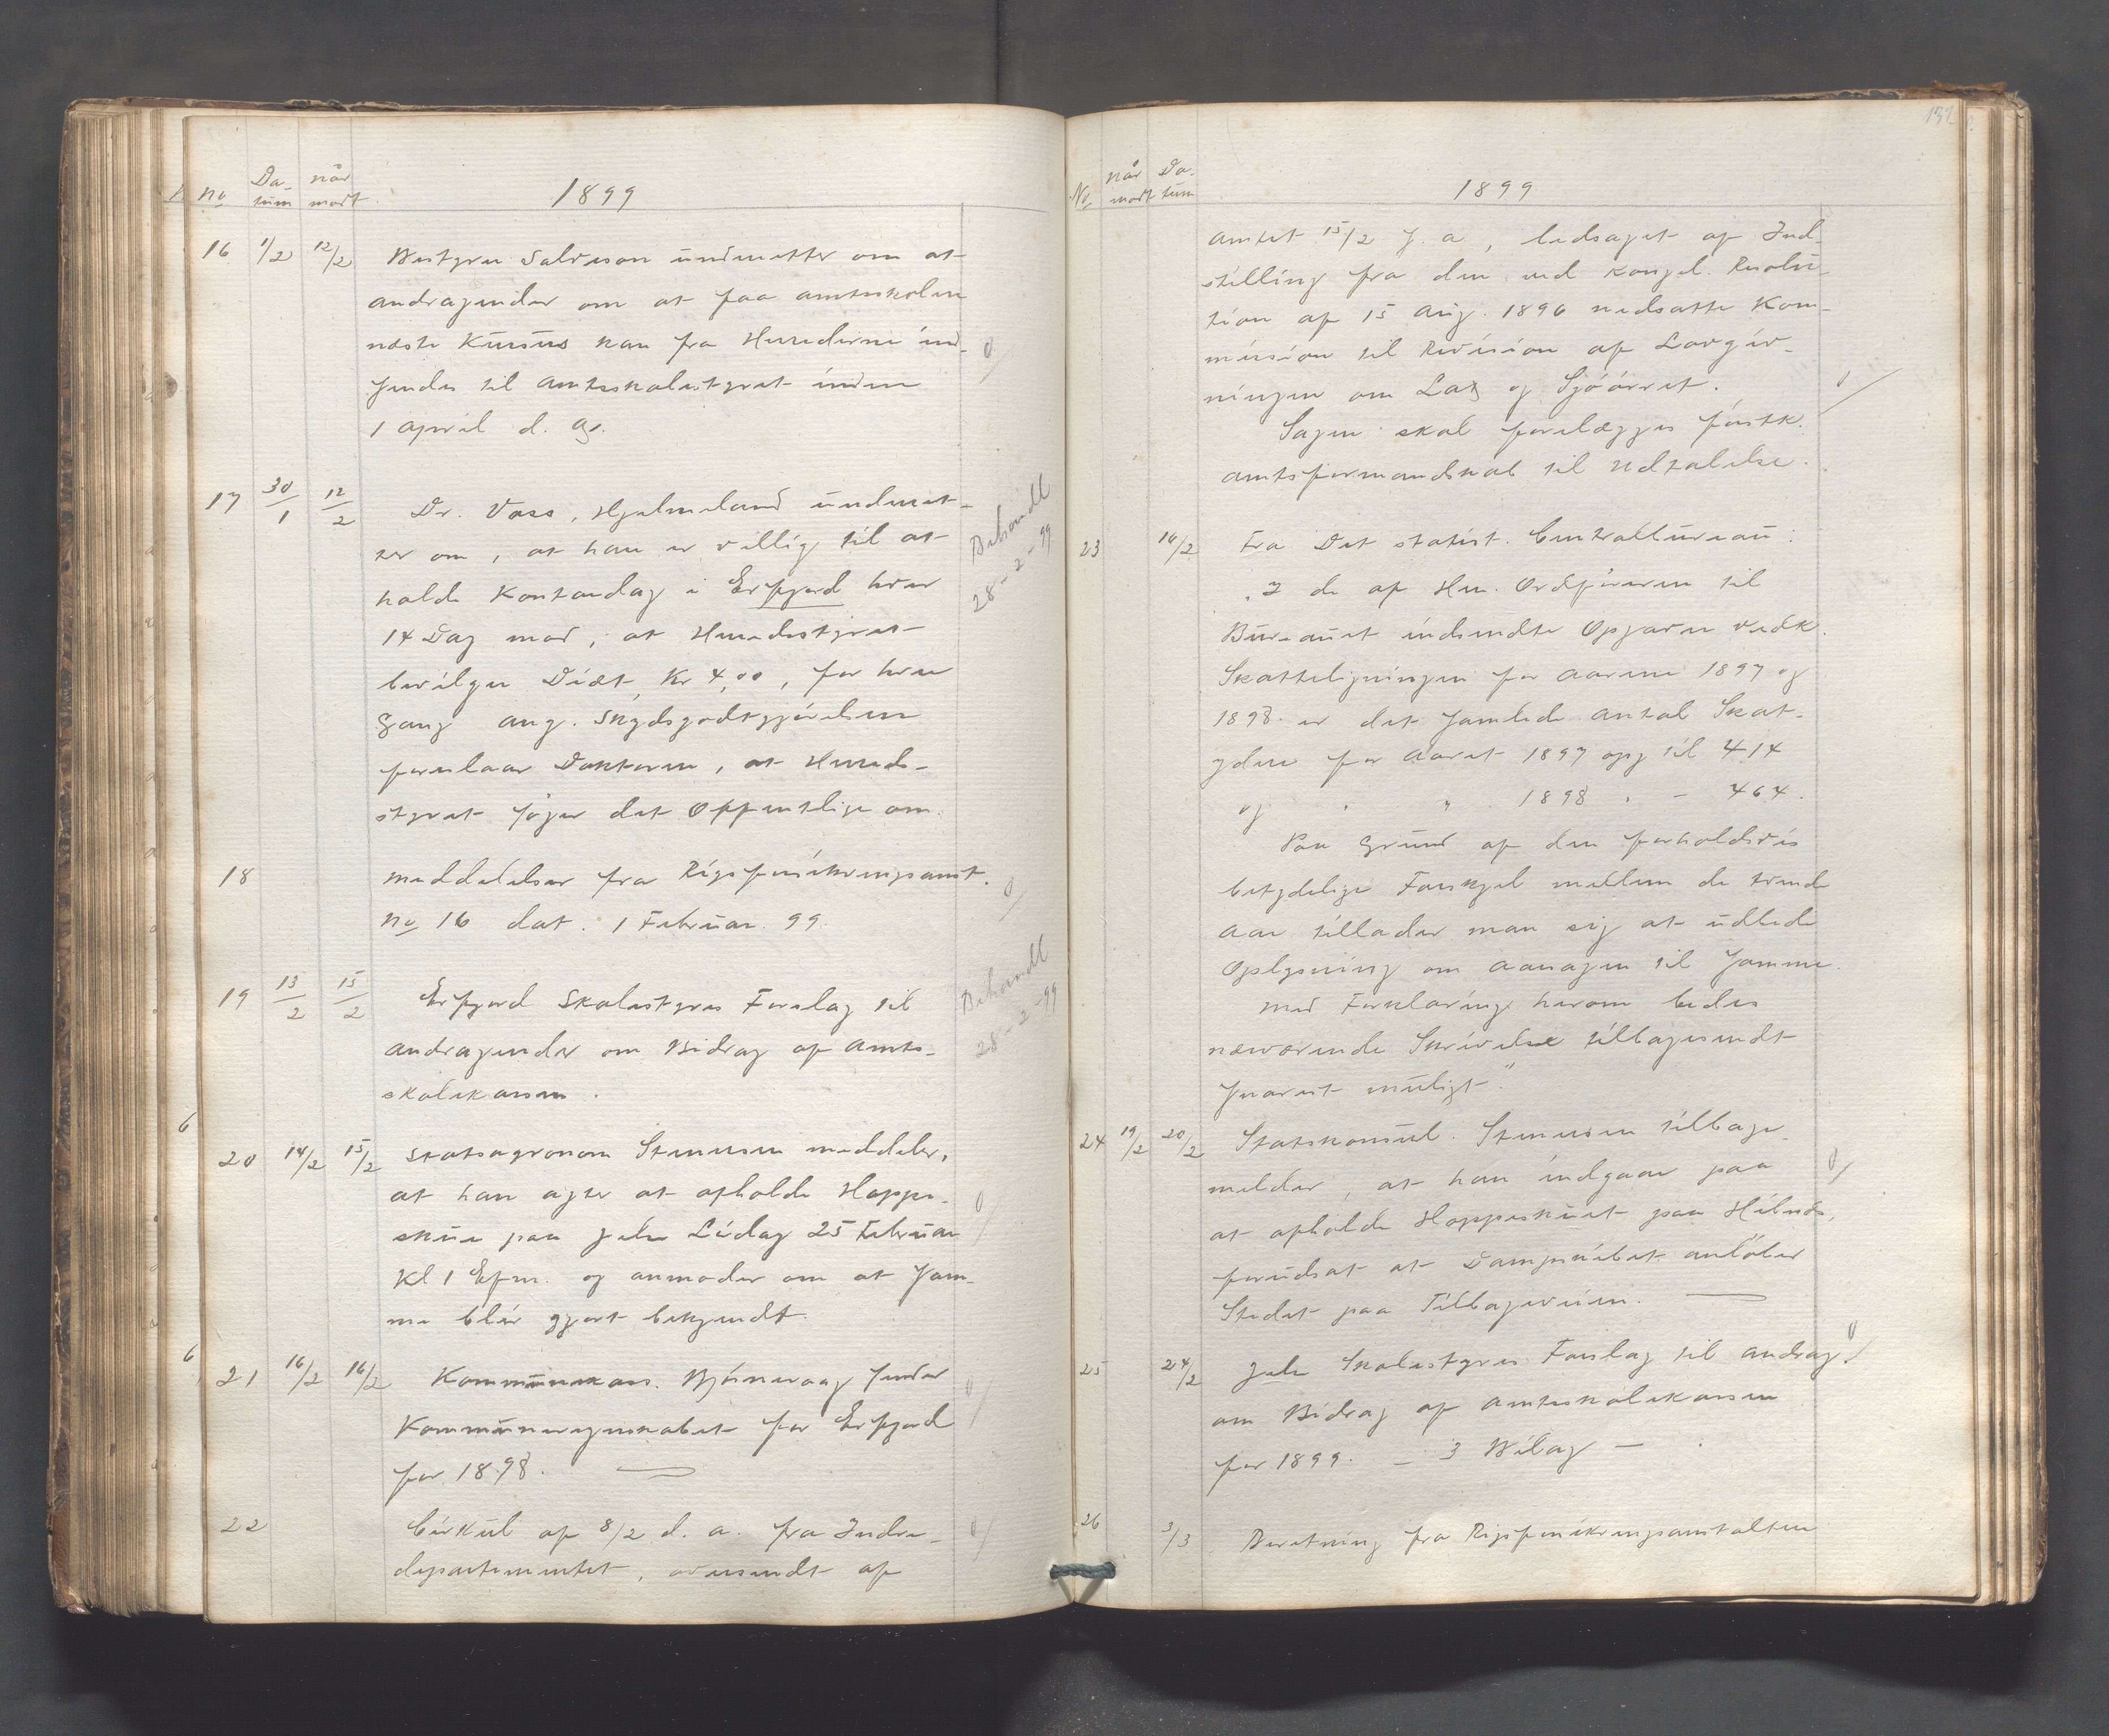 No Da-tum når modt. 1899
16 1/2 12/2 Bestyrer Salveson underretter om at
andragender om at faa amtsskolens
næste Kursus kan fra Herrederne ind-
sendes til Amtsskolestyret inden
1 april d. A.
17 30/1 12/2 Dr. Voss, Hjelmeland underret-
ter om, at han er villig til at
holde Kontordag i Erfjord hver
14 Dag mod, at Herredsstyret
bevilger Diæt Kr 4,00, for hver
Gang ang. Skydsgodtgjörelsen
foreslaar Doktoren, at Herreds-
styret söger det Offentlige om.
Behandl
28-2-99
18 Meddelelser fra Rigsforsikringsanst.
No 16 dat. 1 Februar 99
19 13/2 15/2 Erfjord Skolestyres Forslag til
andragender om Bidrag af Amts-
skolekassen.
Behandl
28-2-99
20 14/2 15/2 Statsagronom Stenersen meddeler,
at han agter at afholde Hoppe-
skue paa Jelse Lördag 25 Februar
Kl 1 Efm. og anmoder om at sam-
me blir gjort bekjendt.
21 16/2 16/2 Kommunekass. Björnevaag sender
Kommuneregnskabet for Erfjord
for 1898.
22 Cirkul af 8/2 d. a. fra Indre-
departementet, oversendt af
132
No når modt Da-tum 1899
amtet 15/2 s. a., ledsaget af Ind-
stilling fra den ved kongel. Resolu-
tion af 15 Aug. 1896 nedsatte Kom-
mission til Revision af Lovgiv-
ningen om Lax og Sjöörret.
Sagen skal forelægges forstk.
amtsformandskab til Udtalelse.
23 16/2 Fra Det statist. Centralbureau:
"I de af Hrr. Ordföreren til
Bureauet indsendte Opgaver vedk.
Skatteligningen for Aarene 1897 og
1898 er det samlede antal Skat-
ydere for Aaret 1897 opg til 414
og " " 1898 " - 464.
Paa Grund af den forholdsvis
betydelige Forskjel mellem de tvende
Aar tillader man sig at udbede
Oplysning om Aarsagen til samme.
Med Forklaring herom bedes
nærværende Skrivelse tilbagesendt
snarest muligt"
24 19/2 20/2 Statskonsul. Stenersen tilbage-
melder, at han indgaar paa
at afholde Hoppeskuet paa Hebnes,
forudsat at Dampskibet anlöber
Stedet paa Tilbageveien.
25 24/2 Jelse Skolestyres Forslag til Andrag.
om Bidrag af Amtsskolekassen
for 1899. - 3 Bilag -
26 3/3 Beretning fra Rigsforsikringsanstalten